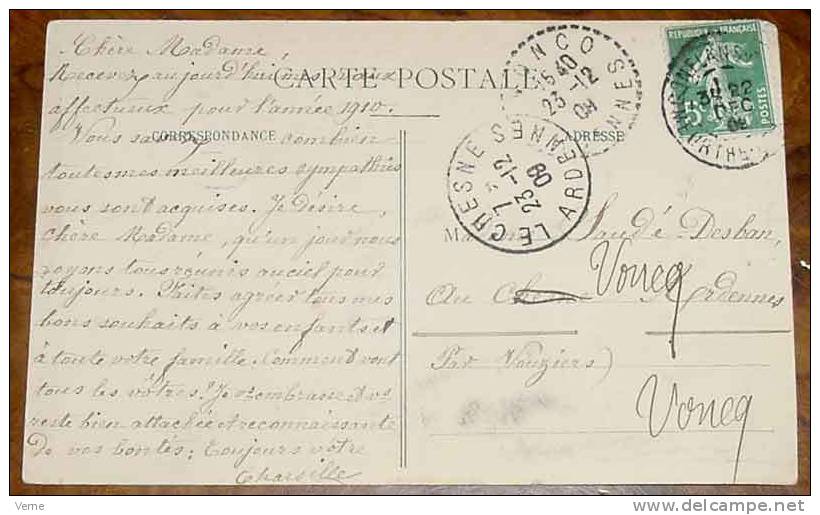 Chère Madame,
Recevez aujourd'hui mes vœux
affectueux pour l'année 1910.
Vous savez combien
toutes mes meilleures sympathies
vous sont acquises. Je désire,
chère Madame, qu'un jour nous
soyons tous réunis au ciel pour
toujours. Faites agréer tous mes
bons souhaits à vos enfants et
à toute votre famille. Comment vont
tous les vôtres? Je vs embrasse et vs
reste bien attachée et reconnaissante
de vos bontés; toujours vôtre
CARTE POSTALE
CORRESPONDANCE
ADRESSE
REPUBLIQUE FRANÇAISE
5
POSTES
22
DEC
VONCQ
15 40
23 -12
09
LE CHESNE
7
23 -12
09
ARDENNES
Desban,
Au
Ardennes
Voncq
Par Vouziers)
Voncq
Verne
www.delcampe.net